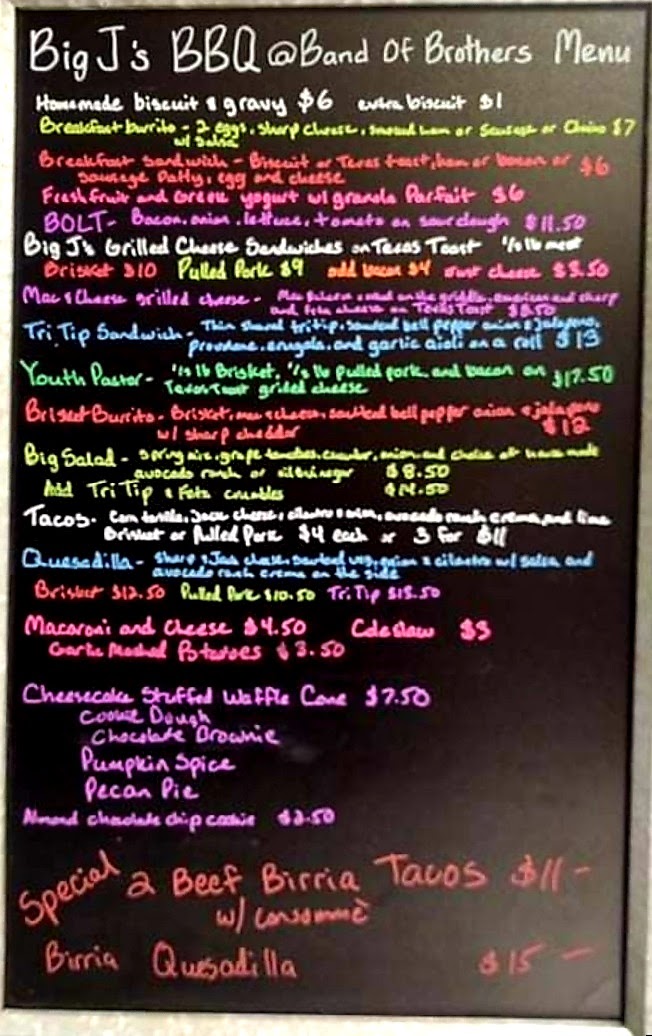 Big J's BBQ @ Band Of Brothers Menu
Homemade biscuit & gravy $6 extra biscuit $1
Breakfast burrito - 2 eggs, sharp cheese, smoked ham or Sausage or Chorizo $7
w/ Salsa
Breakfast Sandwich - Biscuit or Texas toast, ham or bacon or $6
Sausage Patty, egg and cheese
Fresh fruit and Greek yogurt w/ granola Parfait $6
BOLT - Bacon, onion, lettuce, tomato on sourdough $11.50
Big J's Grilled Cheese Sandwiches on Texas Toast 1/3 lb meat
Brisket $10 Pulled Pork $9 add bacon $4 Just cheese $3.50
Mac & Cheese grilled cheese - Mac & cheese on the griddle, american and sharp
and feta cheese on Texas Toast $8.50
Tri Tip Sandwich - Thin shaved tri tip, sauteed bell pepper onion & jalapeno,
provolone, arugala, and garlic aioli on a roll $13
Youth Pastor - 1/3 lb Brisket, 1/3 lb pulled pork, and bacon on $17.50
Texas Toast grilled cheese
Brisket Burrito - Brisket, mac & cheese, sauteed bell pepper onion & jalapeno
w/ sharp cheddar $12
Big Salad - Spring mix, grape tomatoes, cucumber, onion and choice of house made
avocado ranch or oil & vinegar $8.50
Add Tri Tip & Feta crumbles $14.50
Tacos - Corn tortilla, Jack cheese, cilantro & onion, avocado ranch crema, and lime
Brisket or Pulled Pork $4 each or 3 for $11
Quesadilla - Sharp & Jack cheese, sauteed veg, onion & cilantro w/ salsa and
avocado ranch crema on the side
Brisket $12.50 Pulled Pork $10.50 Tri Tip $13.50
Macaroni and Cheese $4.50 Coleslaw $3
Garlic Mashed Potatoes $3.50
Cheesecake Stuffed Waffle Cone $7.50
Cookie Dough
Chocolate Brownie
Pumpkin Spice
Pecan Pie
Almond chocolate chip cookie $2.50
Special 2 Beef Birria Tacos $11 -
w/ consommè
Birria Quesadilla $15 -